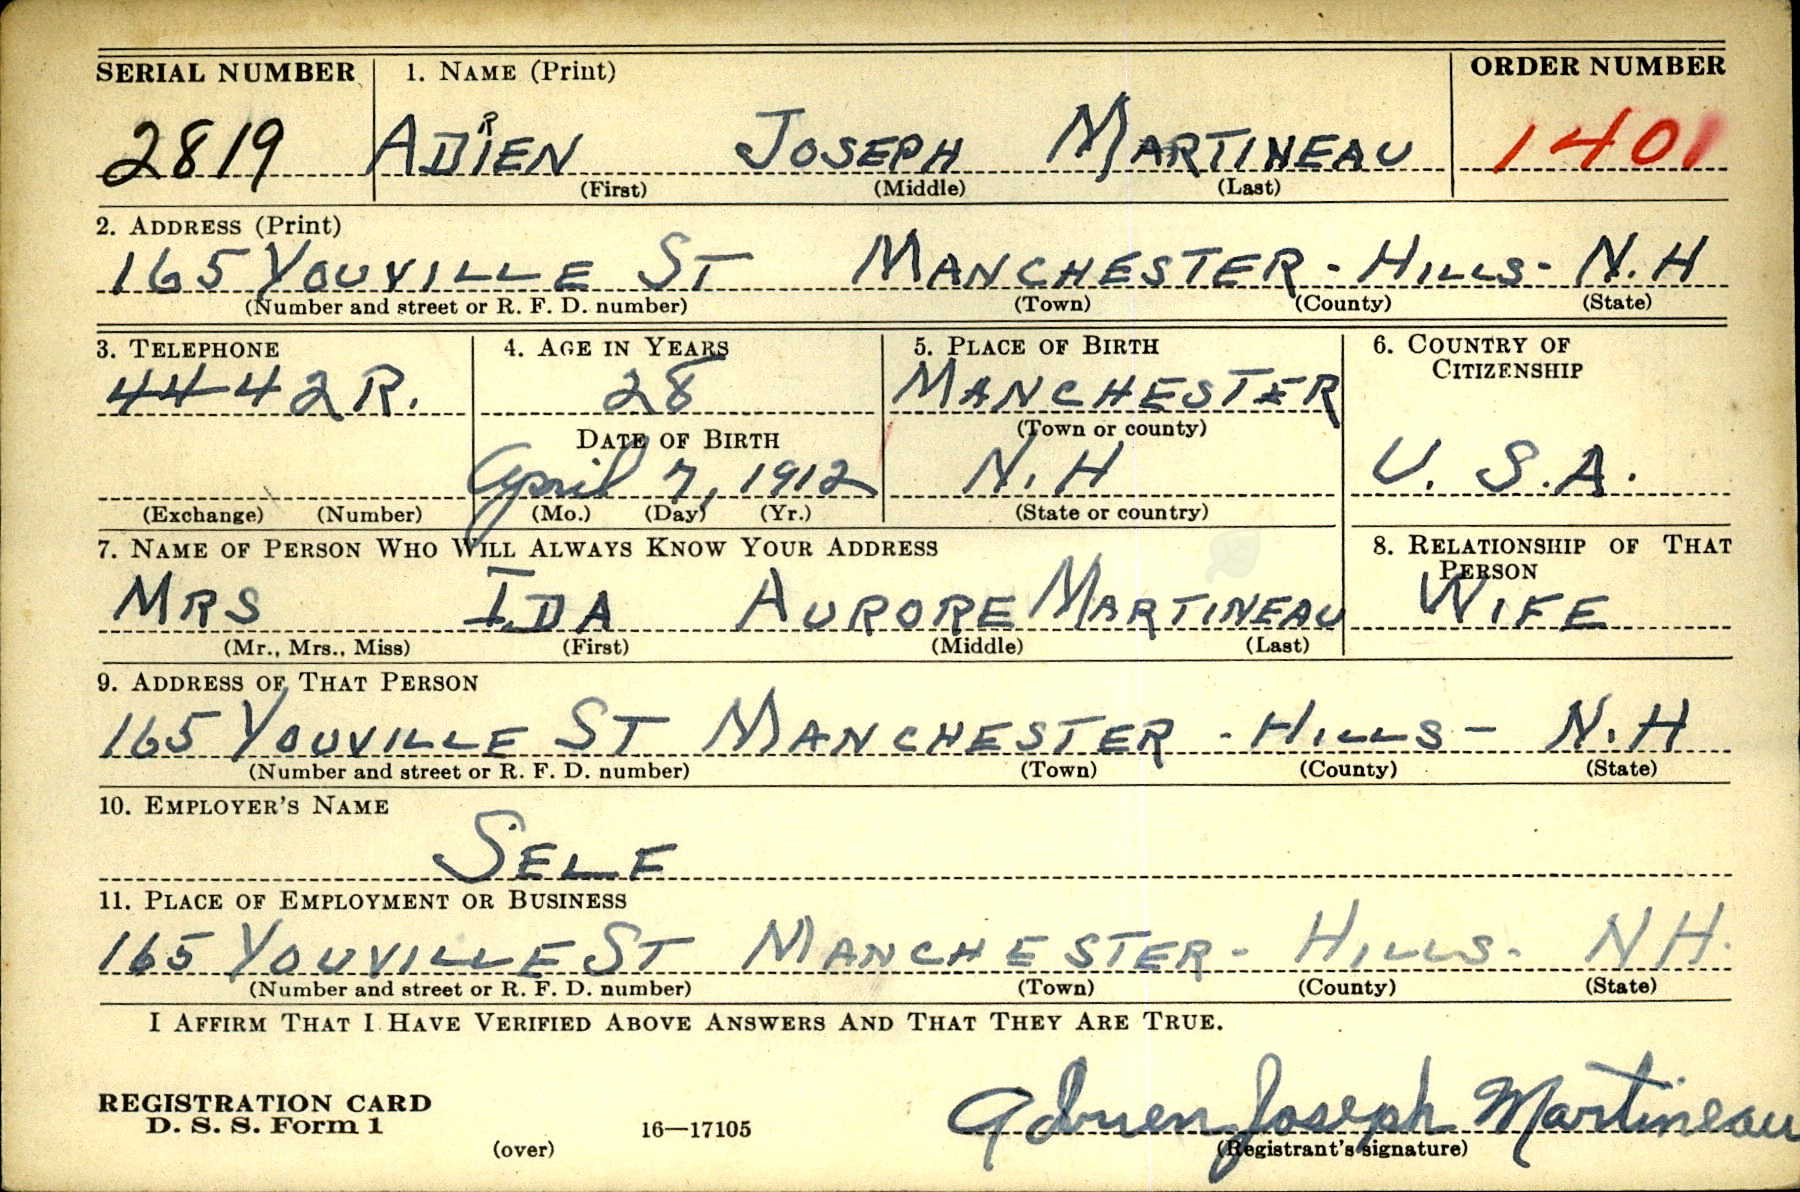 SERIAL NUMBER 1. NAME (Print) ORDER NUMBER
2819 ADRIEN JOSEPH MARTINEAU 1401
(First) (Middle) (Last)
2. ADDRESS (Print)
165 YOUVILLE ST MANCHESTER - HILLS - N.H
(Number and street or R. F. D. number) (Town) (County) (State)
3. TELEPHONE 4. AGE IN YEARS 5. PLACE OF BIRTH 6. COUNTRY OF
CITIZENSHIP
4442R. 28 MANCHESTER
(Town or county)
DATE OF BIRTH
April 7, 1912 N.H U. S.A.
(Exchange) (Number) (Mo.) (Day) (Yr.) (State or country)
7. NAME OF PERSON WHO WILL ALWAYS KNOW YOUR ADDRESS 8. RELATIONSHIP OF THAT
PERSON
MRS IDA AURORE MARTINEAU WIFE
(Mr., Mrs., Miss) (First) (Middle) (Last)
9. ADDRESS OF THAT PERSON
165 YOUVILLE ST MANCHESTER - HILLS - N.H
(Number and street or R. F. D. number) (Town) (County) (State)
10. EMPLOYER'S NAME
SELF
11. PLACE OF EMPLOYMENT OR BUSINESS
165 YOUVILLE ST MANCHESTER - HILLS - NH.
(Number and street or R. F. D. number) (Town) (County) (State)
I AFFIRM THAT I HAVE VERIFIED ABOVE ANSWERS AND THAT THEY ARE TRUE.
REGISTRATION CARD
D. S. S. Form 1
(over) 16—17105
Adrien Joseph Martineau
(Registrant's signature)